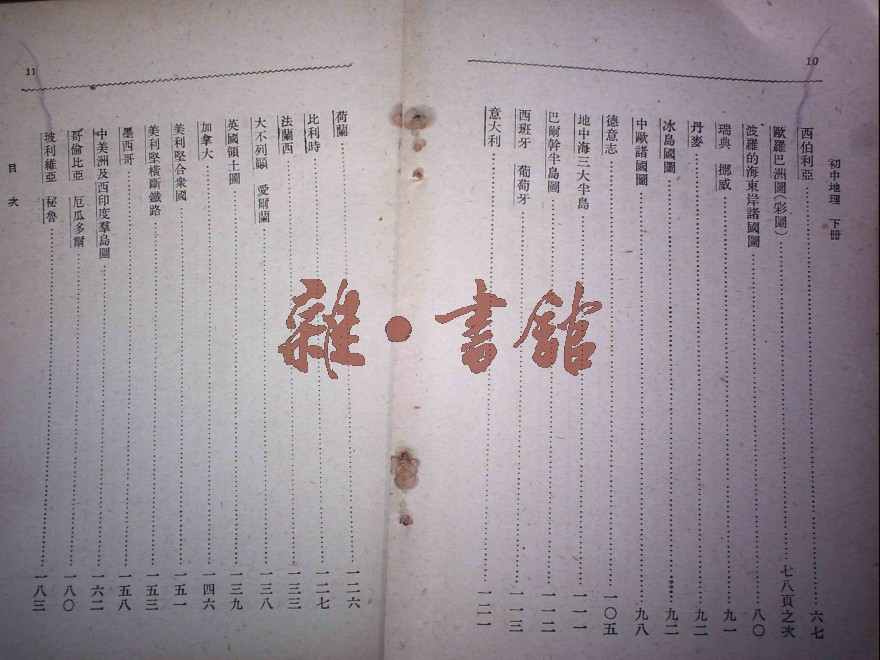 10
初中地理　下册
西伯利亞……六七
歐羅巴洲圖(彩圖)……七八頁之次
波羅的海東岸諸國圖……八〇
瑞典　挪威……九一
丹麥……九二
冰島國圖……九二
中歐諸國圖……九八
德意志……一〇五
地中海三大半島……一一一
巴爾幹半島圖……一一二
西班牙　葡萄牙……一一三
意大利……一二一
11
荷蘭……一二六
比利時……一二七
法蘭西……一三三
大不列顛　愛爾蘭……一三八
英國領土圖……一三九
加拿大……一四六
美利堅合衆國……一五一
美利堅橫斷鐵路……一五三
墨西哥……一五八
中美洲及西印度羣島圖……一六二
哥倫比亞　厄瓜多爾……一八〇
玻利維亞　秘魯……一八三
目次
雜·書館